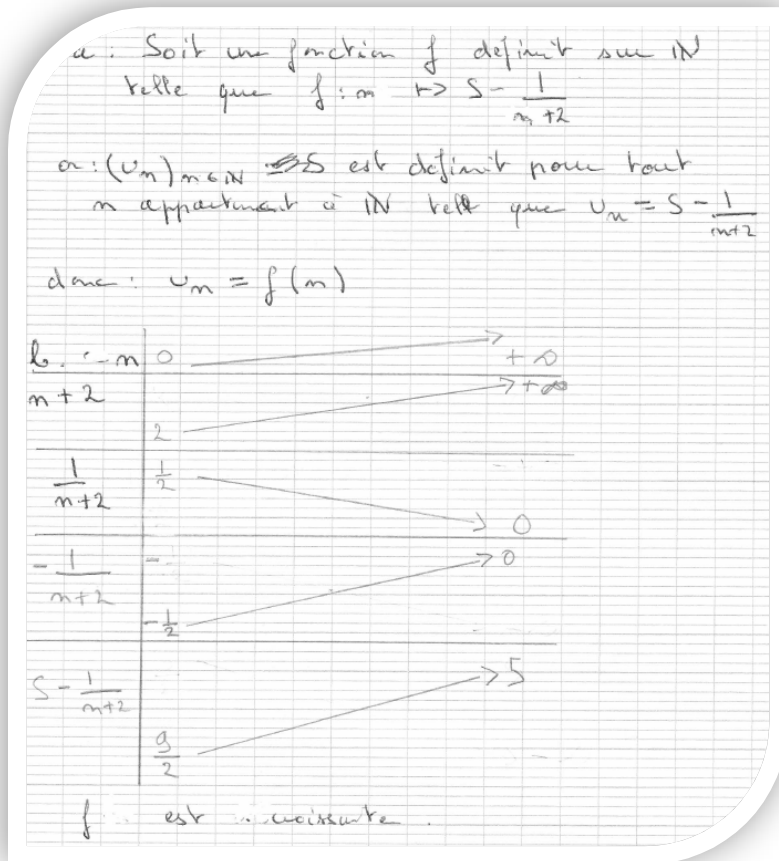 a : Soit une fonction f definit sur IN
telle que f : n ↦ 5 - 1/(n+2)
or : (Un)n∈IN est définit pour tout
n appartenant à IN telle que Un = 5 - 1/(n+2)
donc : Un = f(n)
b. n 0 +∞
n+2 2 +∞
1/(n+2) 1/2 0
- 1/(n+2) - 1/2 0
5 - 1/(n+2) 9/2 5
f est croissante.